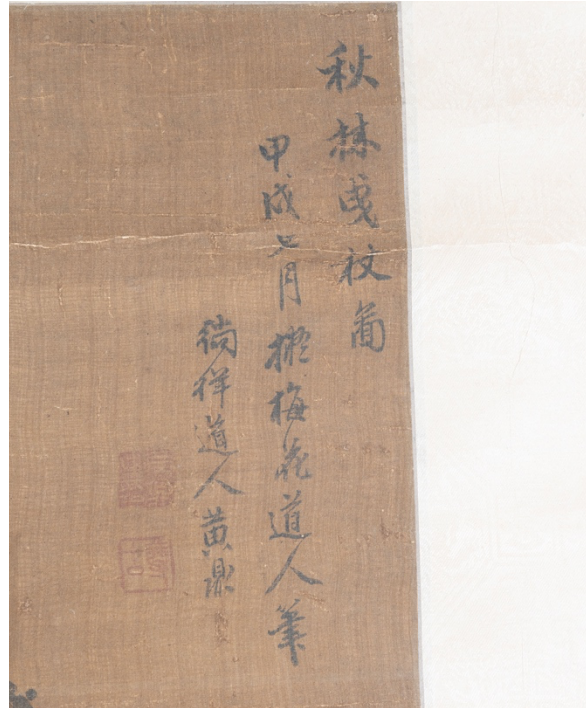 秋林曵杖圖
甲戌七月擬梅花道人筆
徜徉道人黄鼎